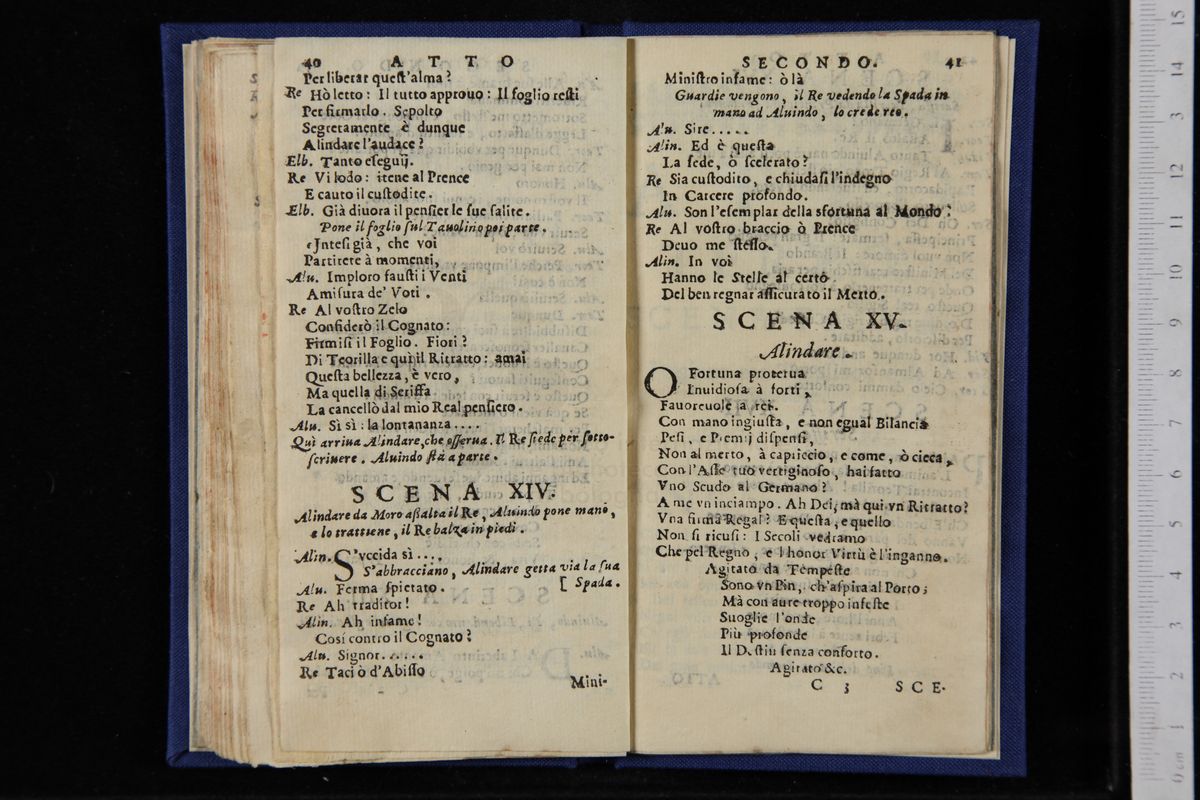 40 ATTO
Per liberar quest'alma?
Re Hò letto: Il tutto approuo: Il foglio resti
Per firmarlo. Sepolto
Segretamente è dunque
Alindare l'audace?
Elb. Tanto eseguij.
Re Vi lodo: itene al Prence
E cauto il custodite.
Elb. Già diuora il pensier le sue salite.
Pone il foglio sul Tauolino poi parte.
Intesi già, che voi
Partirete à momenti,
Alu. Imploro fausti i Venti
A misura de' Voti.
Re Al vostro Zelo
Confiderò il Cognato:
Firmisi il Foglio. Fiori?
Di Teorilla e quì il Ritratto: amai
Questa bellezza, è vero,
Ma quella di Seriffa
La cancellò dal mio Real pensiero.
Alu. Sì sì: la lontananza....
Quì arriua Alindare, che osserua. Il Re siede per sotto-
scriuere. Aluindo stà a parte.
SCENA XIV.
Alindare da Moro assalta il Re, Aluindo pone mano,
e lo trattiene, il Re balza in piedi.
Alin. S'vccida sì....
S'abbracciano, Alindare getta via la sua
[ Spada.
Alu. Ferma spietato.
Re Ah traditor!
Alin. Ah infame!
Così contro il Cognato?
Alu. Signor.....
Re Taci ò d'Abisso
Mini-
SECONDO. 41
Ministro infame: ò là
Guardie vengono, il Re vedendo la Spada in
mano ad Aluindo, lo crede reo.
Alu. Sire.....
Alin. Ed è questa
La fede, ò scelerato?
Re Sia custodito, e chiudasi l'indegno
In Carcere profondo.
Alu. Son l'esemplar della sfortuna al Mondo!
Re Al vostro braccio ò Prence
Deuo me stesso.
Alin. In voi
Hanno le Stelle al certo
Del ben regnar assicurato il Merto.
SCENA XV.
Alindare.
O Fortuna proterua
Inuidiosa à forti,
Fauoreuole a rei.
Con mano ingiusta, e non egual Bilancia
Pesi, e Premij dispensi,
Non al merto, à capriccio, e come, ò cieca,
Con l'Asse tuo vertiginoso, hai fatto
Vno Scudo al Germano?
A me vn inciampo. Ah Dei, mà qui vn Ritratto?
Vna firma Regal? E questa, e quello
Non si ricusi: I Secoli vedramo
Che pel Regno, e l'honor Virtù è l'inganno.
Agitato da Tempeste
Sono vn Pin, ch'aspira al Porto;
Mà con aure troppo infeste
Suoglie l'onde
Più profonde
Il Destin senza conforto.
Agitato &c.
C 3 SCE-